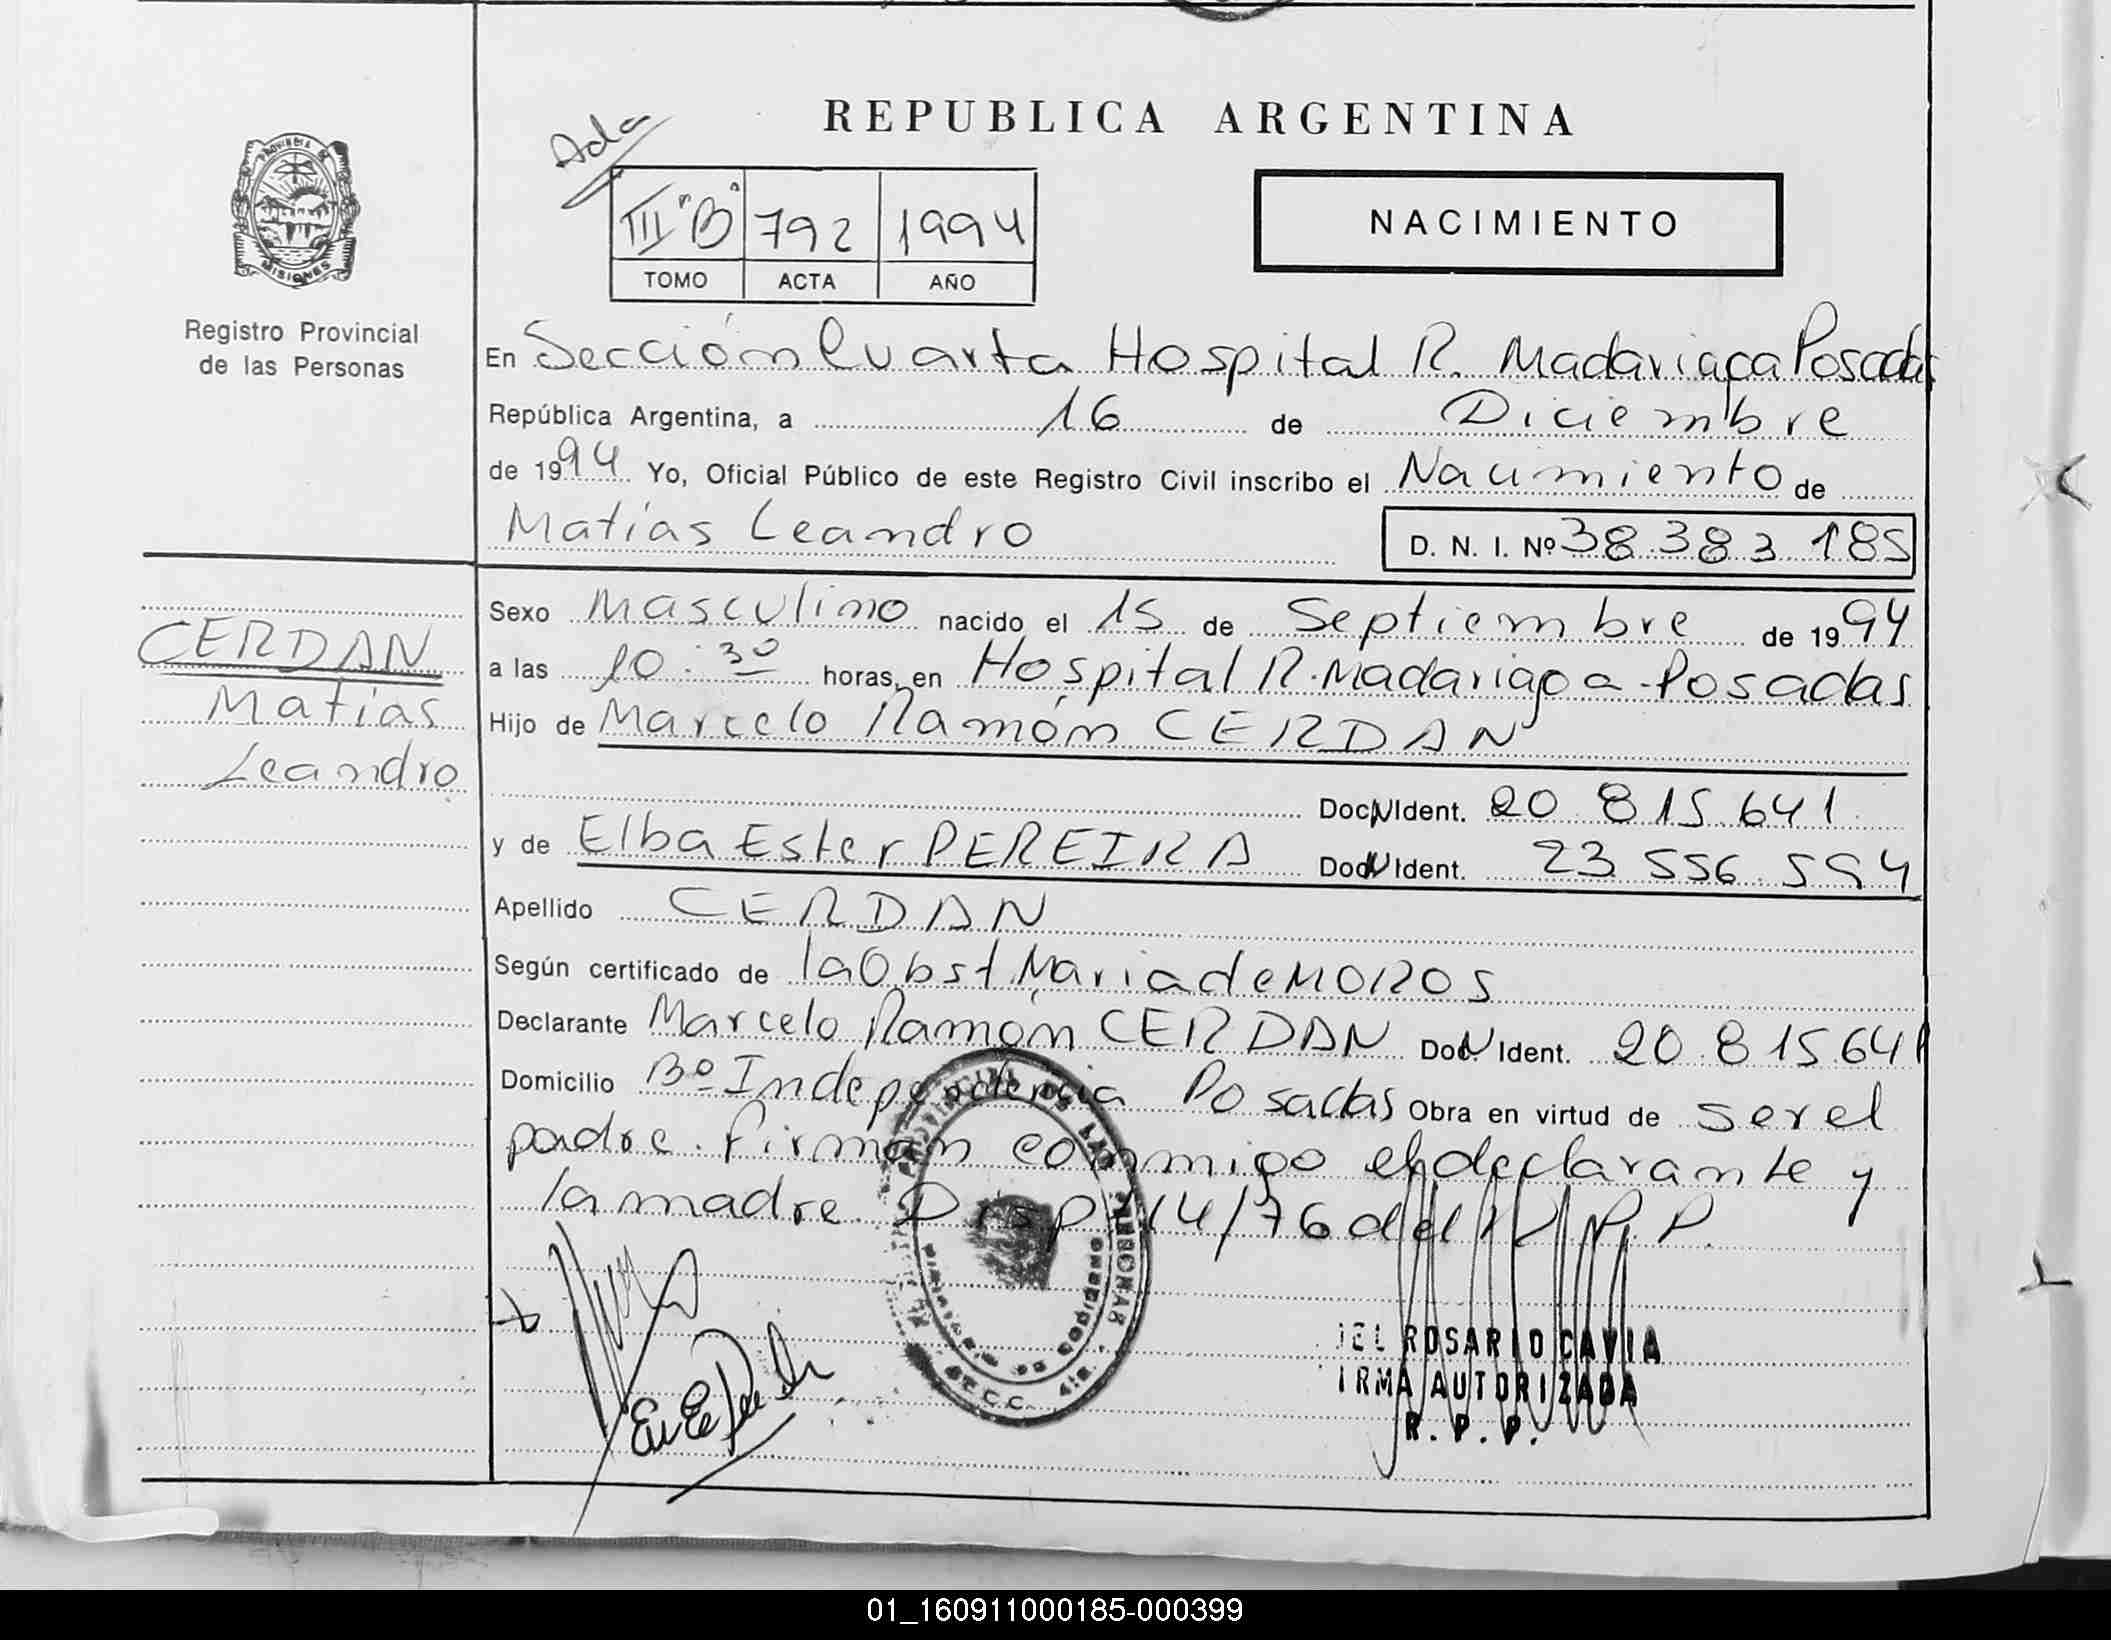 REPUBLICA ARGENTINA
Ada
III "B" 792 1994
TOMO ACTA AÑO
NACIMIENTO
PROVINCIA DE
MISIONES
Registro Provincial
de las Personas
En Sección Cuarta Hospital R. Madariaga Posadas
República Argentina, a 16 de Diciembre
de 1994 Yo, Oficial Público de este Registro Civil inscribo el Nacimiento de
Matías Leandro D. N. I. Nº 38 383 185
CERDAN
Matías
Leandro
Sexo Masculino nacido el 15 de Septiembre de 1994
a las 10:30 horas, en Hospital R. Madariaga - Posadas
Hijo de Marcelo Ramón CERDAN
Doc N Ident. 20 815 641
y de Elba Ester PEREIRA Doc N Ident. 23 556 594
Apellido CERDAN
Según certificado de la Obst Maria de MOROS
Declarante Marcelo Ramón CERDAN Doc. N Ident. 20.815.641
Domicilio Bº Independencia Posadas Obra en virtud de ser el
padre. Firman conmigo el declarante y
la madre. Disp 14/76 del R.P.P.
DEL ROSARIO CAVIA
FIRMA AUTORIZADA
R. P. P.
01_160911000185-000399